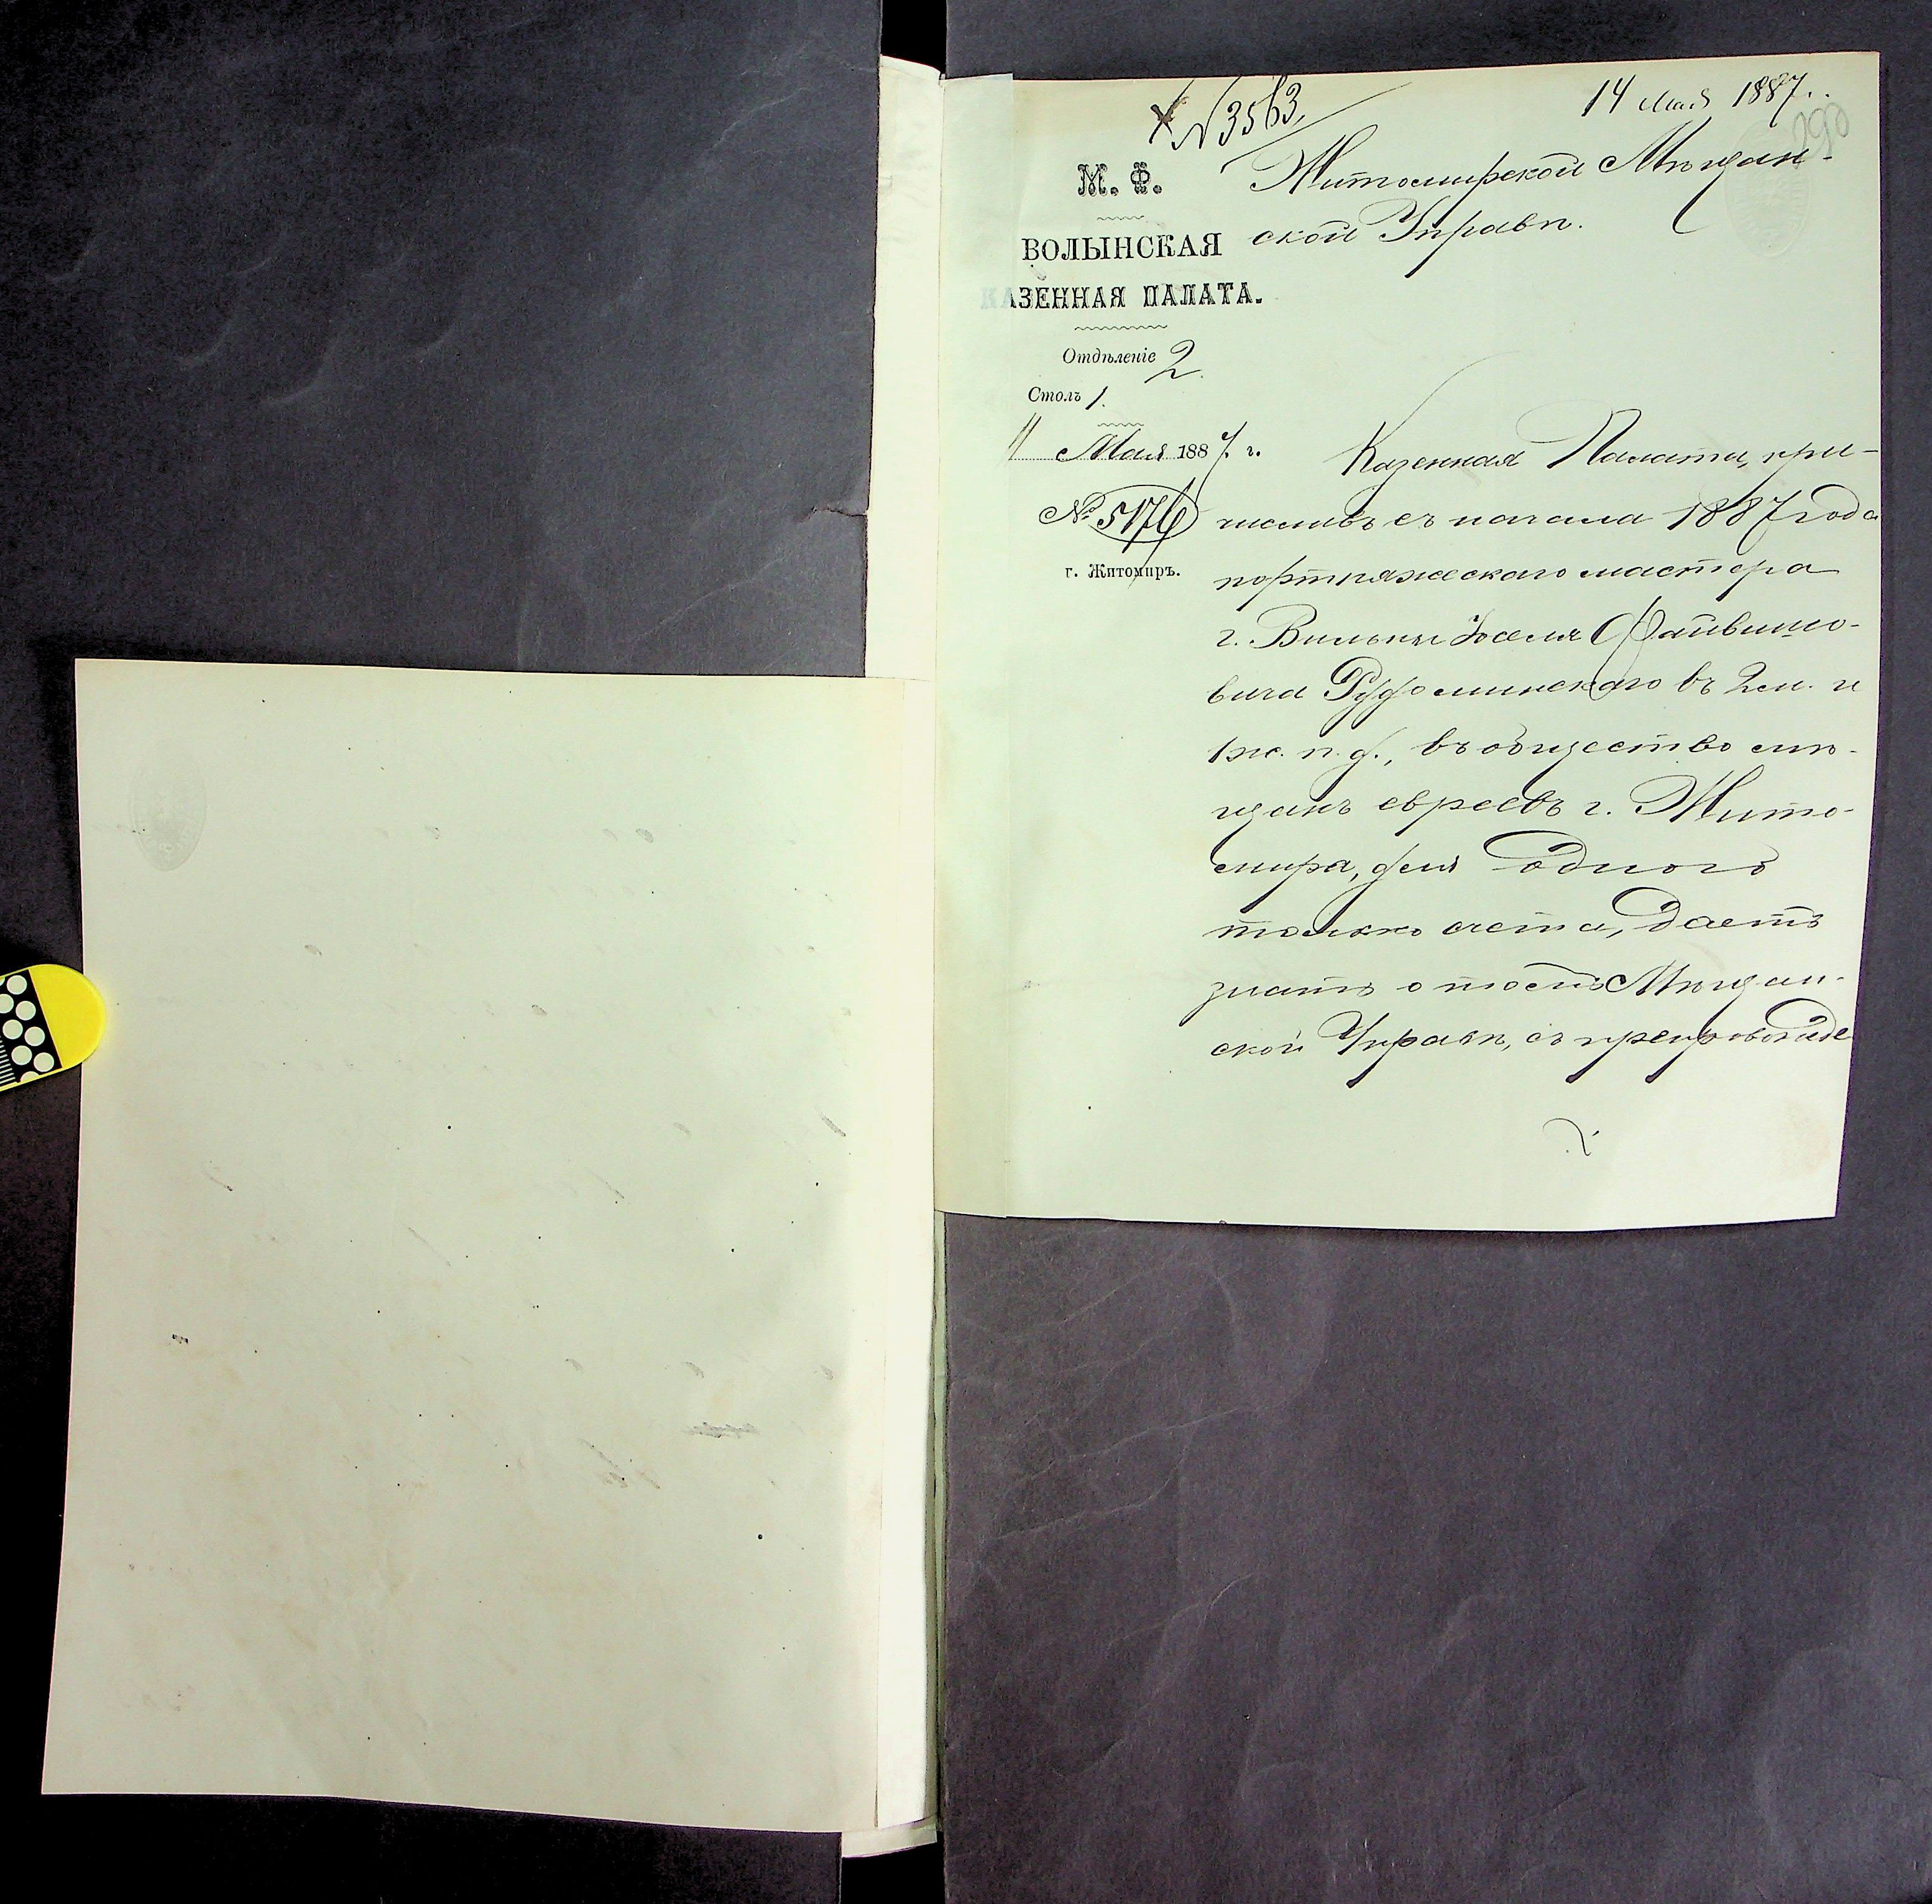 14 Мая 1887.
№ 3563
290
М. Ф.
ВОЛЫНСКАЯ
КАЗЕННАЯ ПАЛАТА.
Отдѣленіе 2.
Столъ 1.
11 Мая 1887 г.
№ 5176
г. Житомиръ.
Житомирской Мѣщан-
ской Управѣ.
Казенная Палата, при-
числивъ съ начала 1887 года
портняжескаго мастера
г. Вильны Іоселя Файвишо-
вича Рудоминскаго въ 2 м. и
1 ж. п. д., въ общество мѣ-
щанъ евреевъ г. Жито-
мира, для одного
только счета, даетъ
знать о томъ Мѣщан-
ской Управѣ, съ препровожде